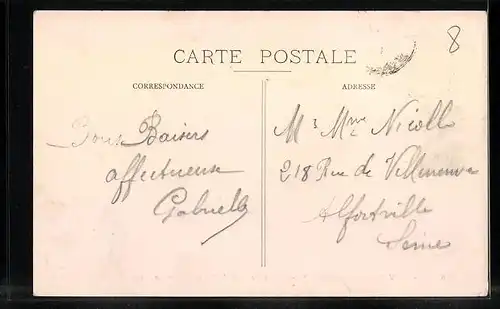 8
CARTE POSTALE
CORRESPONDANCE
ADRESSE
Bons Baisers
affectueux
Gabrielle
Mr Mme Nicolle
218 Rue de Villeneuve
Alfortville
Seine